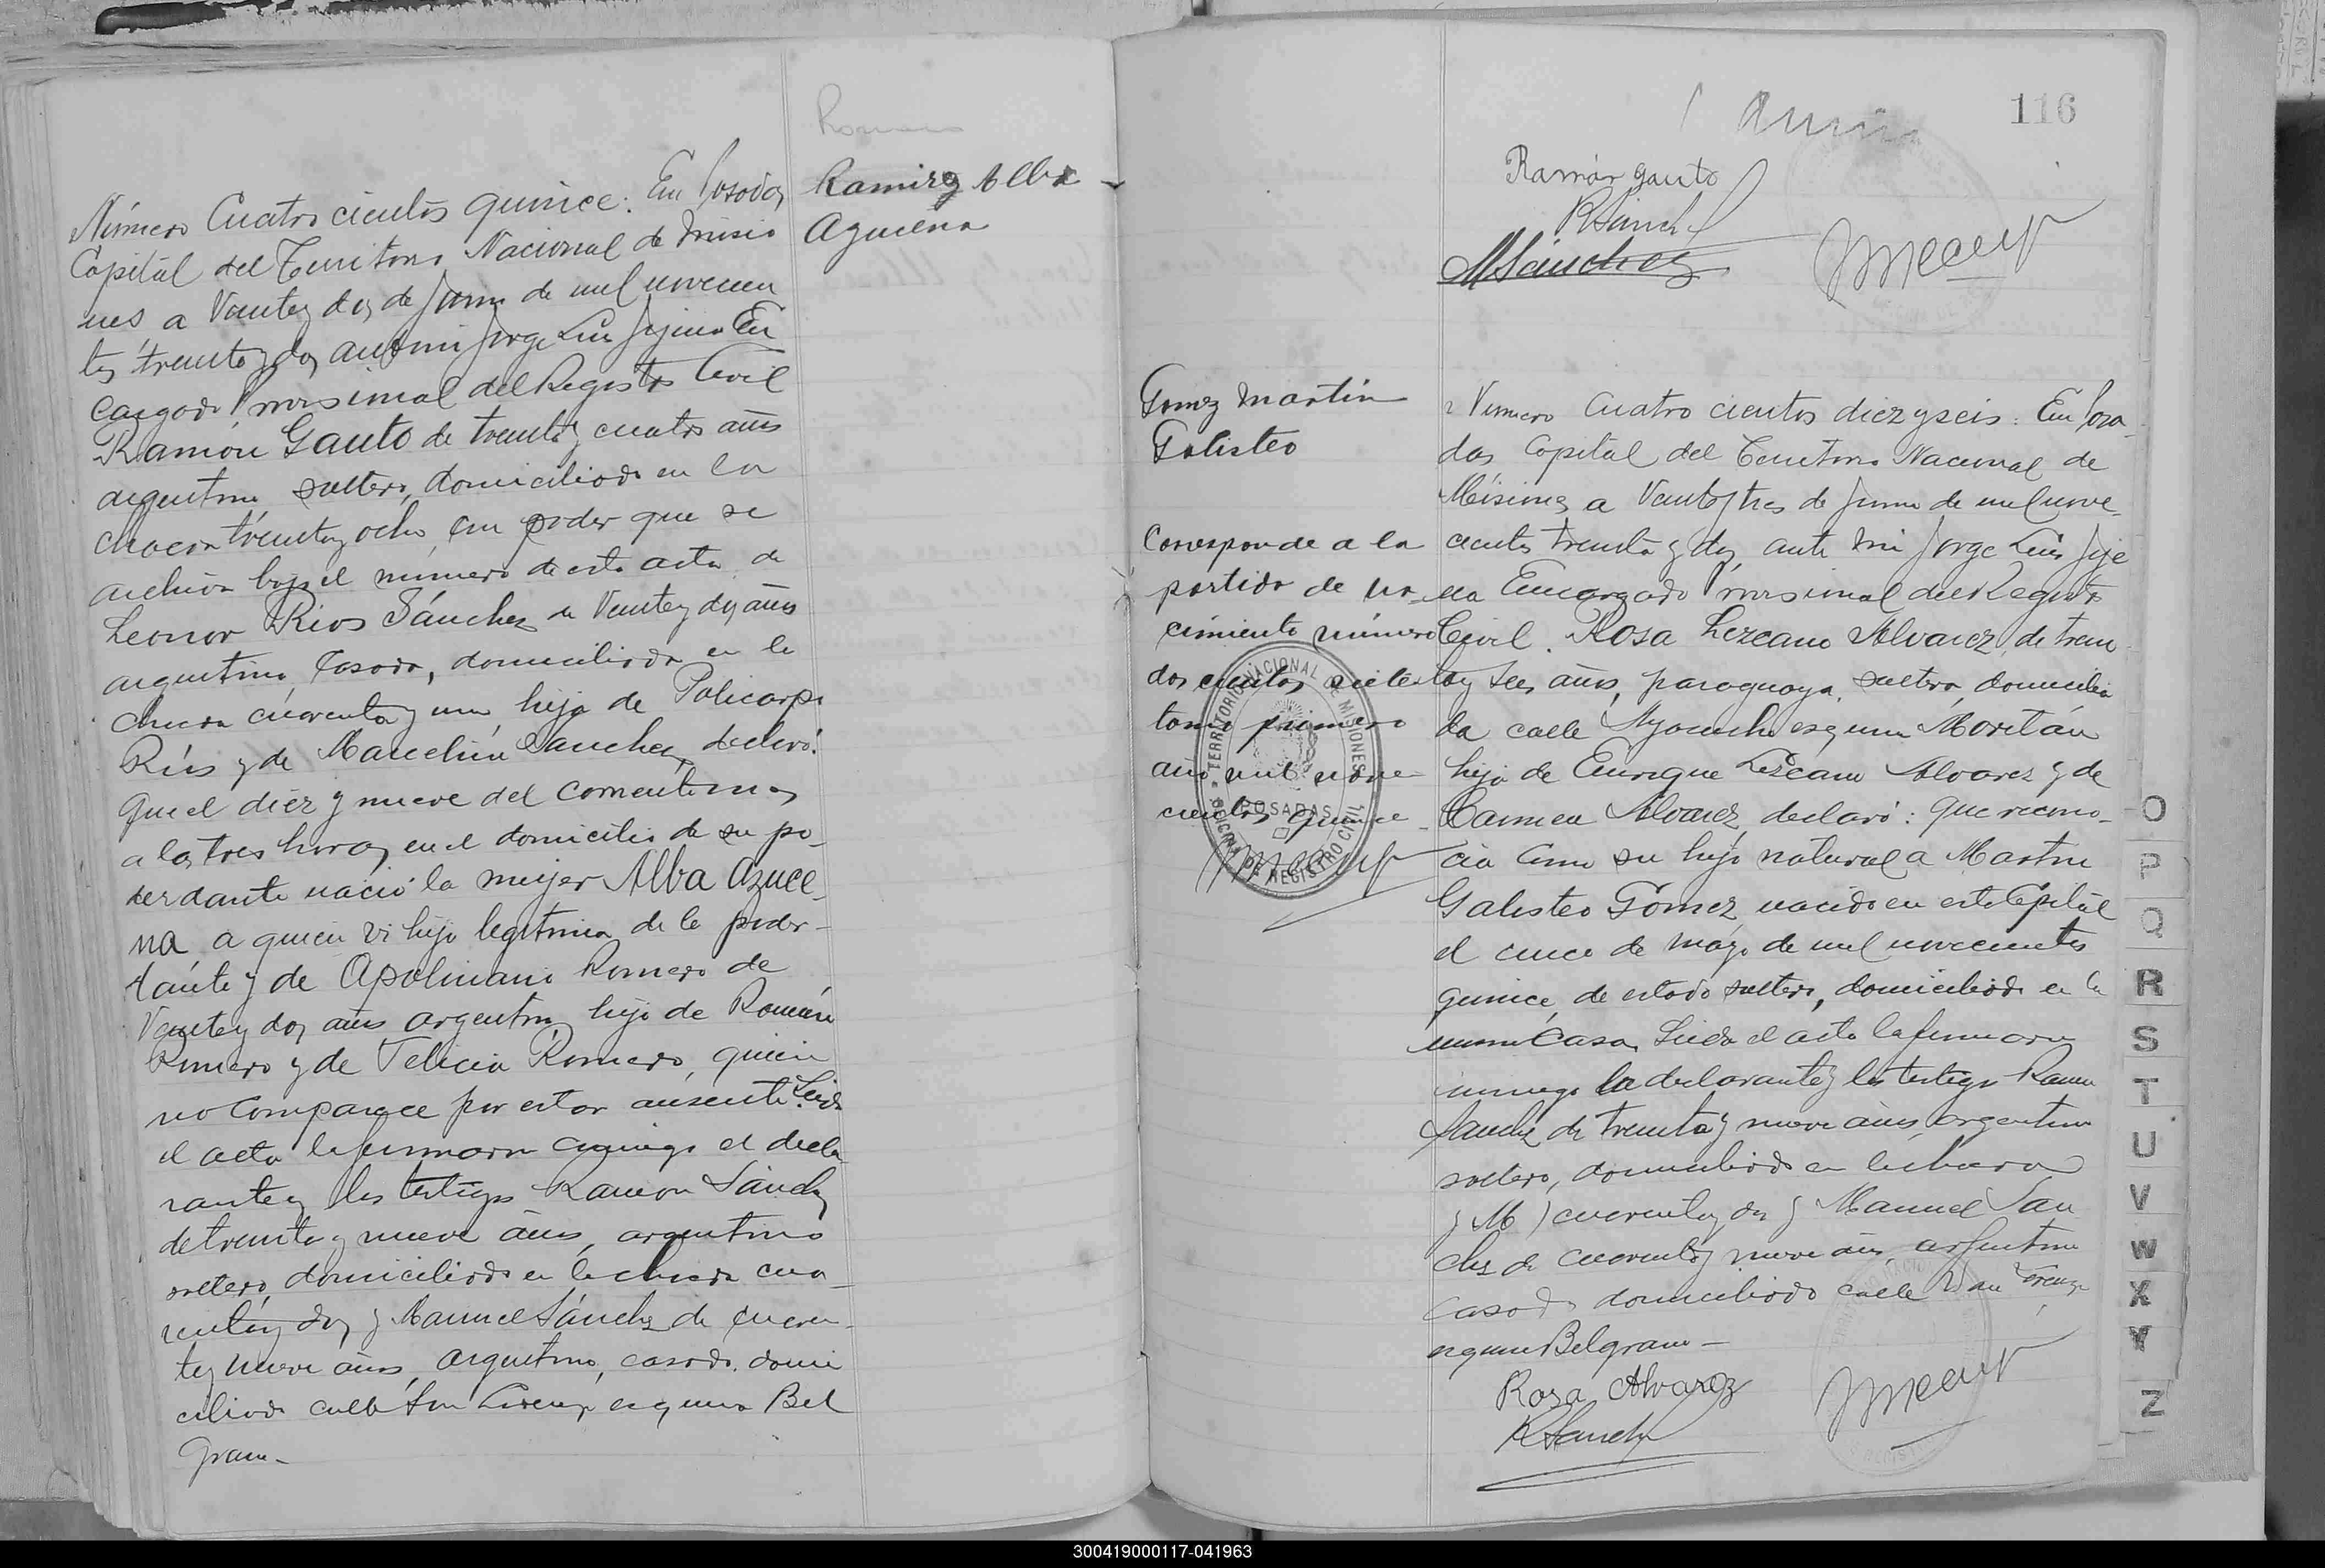 Número Cuatro cientos quince: En Posadas
Capital del Territorio Nacional de Misio
nes a Veinte y dos de Junio de mil novecien
tos treinta y dos ante mi Jorge Luis Jejena En
cargado Provisional del Registro Civil
Ramón Gauto de treinta y cuatro años
argentino, soltero, domiciliado en la
chacra treinta y ocho, con poder que se
archiva bajo el número de esta acta de
Leonor Rios Sánchez de Veinte y dos años
argentina, Casada, domiciliada en la
chacra cuarenta y uno, hija de Policarpo
Rios y de Sanchez, declaró:
Que el diez y nueve del corriente mes
a las tres horas, en el domicilio de su po-
derdante nació la mujer Alba Azuce-
na, a quien vi hija legítima de la poder-
dante y de Apolinario Romero de
Veinte y dos años argentino, hijo de Román
Romero y de Felicia Romero, quien
no comparece por estar ausente. Leida
el acta la firmaron conmigo el decla
rante y los testigos Ramon Sánchez
de treinta y nueve años, argentino
soltero, domiciliado en la chacra cua-
renta y dos y Manuel Sánchez de cuaren-
ta y nueve años, argentino, casado, domi
ciliado calle San Lorenzo esquina Bel
grano-
Romero
Ramirez Alba
Azucena
116
Ramón Gauto
RSanchez
MSánchez
Gomez Martin
Galisteo
Corresponde a la
partida de na-
cimiento número
dos cientos siete
tomo primero
año mil nove-
cientos quince
TERRITORIO NACIONAL DE MISIONES
POSADAS
OFICINA DE REGISTRO CIVIL
Número Cuatro cientos diez y seis: En Posa-
das Capital del Territorio Nacional de
Misiones a Veinte y tres de Junio de mil nove-
cientos treinta y dos, ante mi Jorge Luis Jeje
na Encargado Provisional del Registro
Civil. Rosa Lezcano Alvarez, de trein
ta y seis años, paraguaya, soltera, domicilia
da calle Ayacucho esquina Moritán
hija de Enrique Lezcano Alvarez y de
Carmen Alvarez, declaró: que recono-
cia como su hijo natural a Martin
Galisteo Gómez, nacido en esta Capital
el cinco de mayo de mil novecientos
quince, de estado soltero, domiciliado en la
misma Casa. Leida el acta la firmaron
conmigo la declarante y los testigos Ramon
Sanchez de treinta y nueve años, argentino
soltero, domiciliado en la chacra
(M) cuarenta y dos y Manuel San
chez de cuarenta y nueve años, argentino
casado domiciliado calle San Lorenzo
esquina Belgrano-
Rosa Alvarez
RSanchez
O
P
Q
R
S
T
U
V
W
X
Y
Z
300419000117-041963